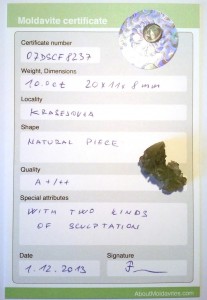 Moldavite certificate
Certificate number
07DSCF8237
Weight, Dimensions
10.0ct 20x11x8mm
Locality
Shape
NATURAL PIECE
Quality
A+/++
Special attributes
WITH TWO KINDS
OF SCULPTATION
Date
Signature
1.12.2013
AboutMoldavites.com